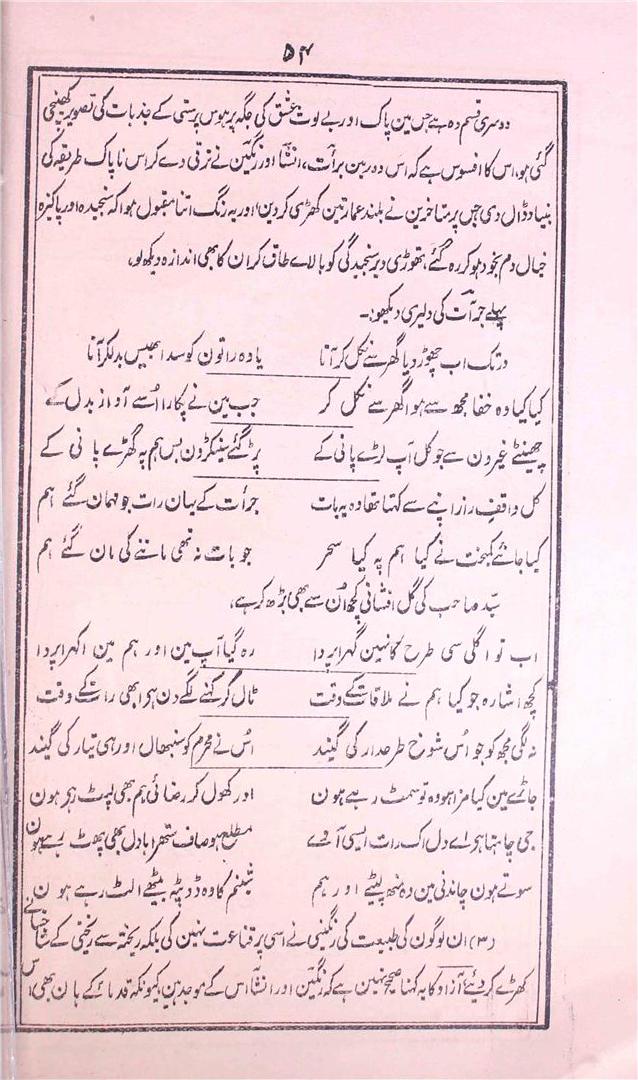 ۵۴
دوسری قسم وہ ہے جس مین پاک اور بے لوث عشق کی جگہ پر ہوس پرستی کے جذبات کی تصویر کھینچی
گئی ہو، اس کا افسوس ہے کہ اس دور مین جرأت، انشا اور رنگین نے ترقی دے کر اس ناپاک طریقہ کی
بنیاد ڈال دی جس پر متاخرین نے بلند عمارتین کھڑی کر دین اور یہ رنگ اتنا مقبول ہوا کہ سنجیدہ اور پاکیزہ
خیال دم بخود ہو کر رہ گئے، تھوڑی دیر سنجیدگی کو بالاے طاق کر ان کا بھی اندازہ دیکھ لو،
پہلے جرأت کی دلیری دیکھو:۔
در تک اب چھوڑ دیا گھر سے نکل کر آنا یا وہ راتون کو سدا بھیس بدلکر آنا
کیا کیا وہ خفا مجھ سے ہوا گھر سے نکل کر جب مین نے پکارا اُسے آواز بدل کے
چھینٹے غیرون سے جو کل آپ لڑے پانی کے پڑ گئے سینکڑون بس ہم پہ گھڑے پانی کے
کل واقف راز اپنے سے کہتا تھا وہ یہ بات جرأت کے یہان رات جو مہمان گئے ہم
کیا جانئے کمبخت نے کیا ہم پہ کیا سحر جو بات نہ تھی ماننے کی مان گئے ہم
سید صاحب کی گل افشانی کچھ اُن سے بھی بڑھ کر ہے،
اب تو اگلی سی طرح کا نہین گہرا پردا رہ گیا آپ مین اور ہم مین اکہرا پردا
کچھ اشارہ جو کیا ہم نے ملاقات کے وقت ٹال کر کہنے لگے دن ہے ابھی رات کے وقت
نہ لگی مجھ کو جو اُس شوخ طرحدار کی گیند اُس نے محرم کو سنبھال اور ہی تیار کی گیند
جاڑے مین کیا مزا ہو وہ تو سمٹ رہے ہون اور کھول کر رضائی ہم بھی لپٹ رہے ہون
جی چاہتا ہے اے دل اک رات ایسی آوے مطلع ہو صاف ستھرا بادل بھی پھٹ رہے ہون
سوتے ہون چاندنی مین وہ منھ لپیٹے اور ہم شبنم کا وہ دوپٹہ بیٹھے الٹ رہے ہون
(۳) ان لوگون کی طبیعت کی رنگینی نے اسی پر قناعت نہین کی بلکہ ریختہ سے ریختی کے شاخسانے
کھڑے کر دیئے آزاد کا یہ کہنا صحیح نہین ہے کہ رنگین اور انشا اس کے موجد ہین کیونکہ قدما کے ہان بھی اس